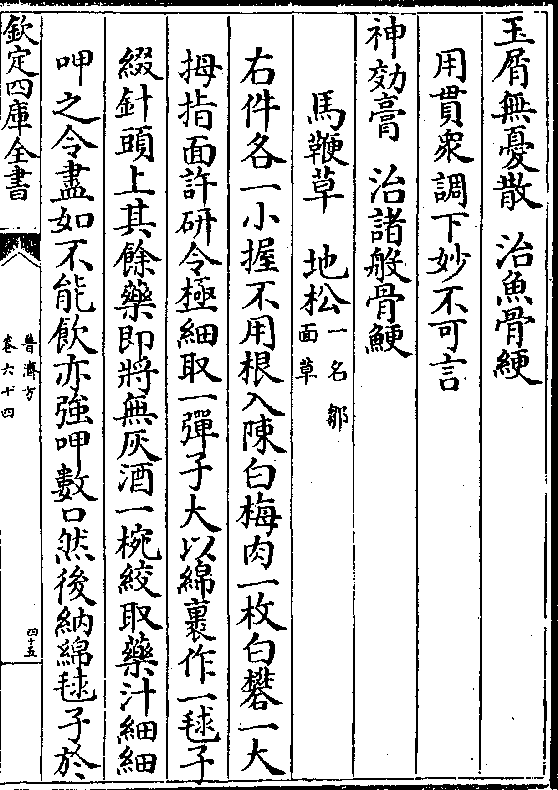 玉屑無憂散　治魚骨綆
用貫衆調下妙不可言
神効膏　治諸般骨鯁
馬鞭草　地松一名鄒面草
右件各一小握不用根入陳白梅肉一枚白礬一大
拇指面許研令極細取一彈子大以綿裹作一毬子
綴針頭上其餘藥即將無灰酒一椀絞取藥汁細細
呷之令盡如不能飲亦強呷數口然後納綿毬子於
欽定四庫全書
普濟方
卷六十四
四十五